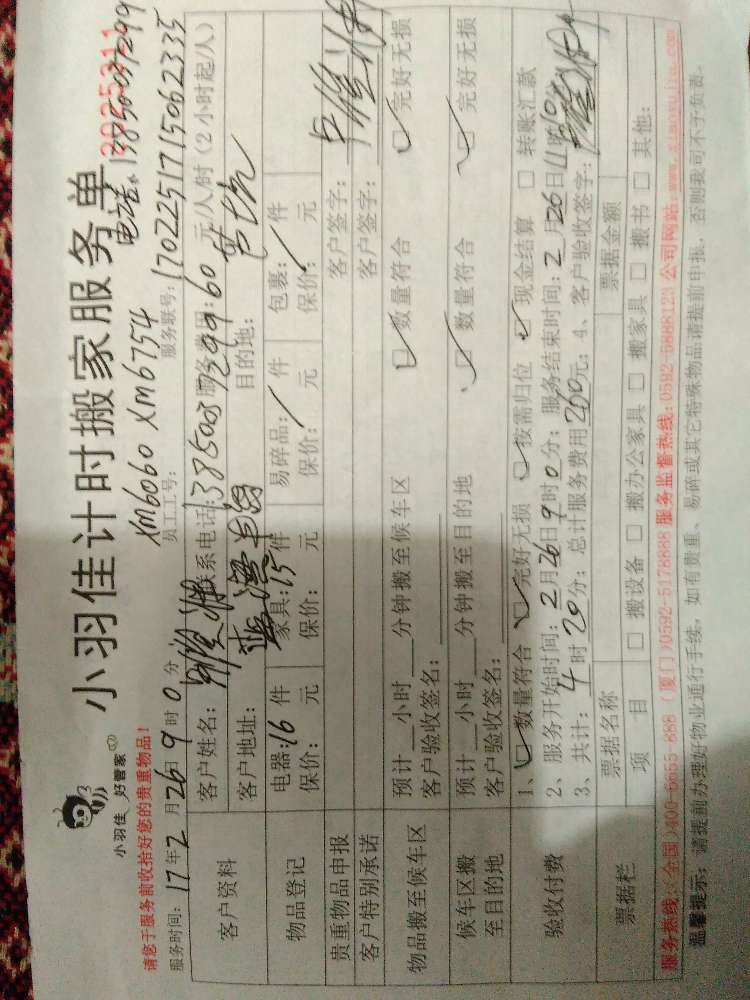 小羽佳计时搬家服务单
小羽佳 好管家
请您于服务前收拾好您的贵重物品！
电话:13850037299
服务时间：17年2月26日9时0分
员工工号：XM6060 XM6754
服务联号：1702251715062335
客户资料
客户姓名：
联系电话：13850037299
服务费用：60元/人/时（2小时起/人）
客户地址：
目的地：
物品登记
电器：16件
家具：15件
易碎品：/件
包裹：/件
保价： 元
保价： 元
保价： 元
保价： 元
贵重物品申报
客户签字：
客户特别承诺
客户签字：
物品搬至候车区
预计__小时__分钟搬至候车区
☑数量符合
☑完好无损
客户验收签名：
候车区搬至目的地
预计__小时__分钟搬至目的地
数量符合
完好无损
客户验收签名：
验收付费
1、☑数量符合 ☑完好无损 ☑按需归位 ☑现金结算 □转账汇款
2、服务开始时间：2月26日9时0分；服务结束时间：2月26日11时10分
3、共计：4时20分；总计服务费用260元；4、客户验收签字：
票据栏
票据名称
票据金额
项 目
□搬设备 □搬办公家具 □搬家具 □搬书 □其他：
服务热线：（全国）400-6655-888（厦门）0592-5178888 服务监督热线：0592-5888123 公司网站：www.xiaoyujia.com
温馨提示：请提前办理好物业通行手续，如有贵重、易碎或其它特殊物品请提前申报，否则我司不予负责。